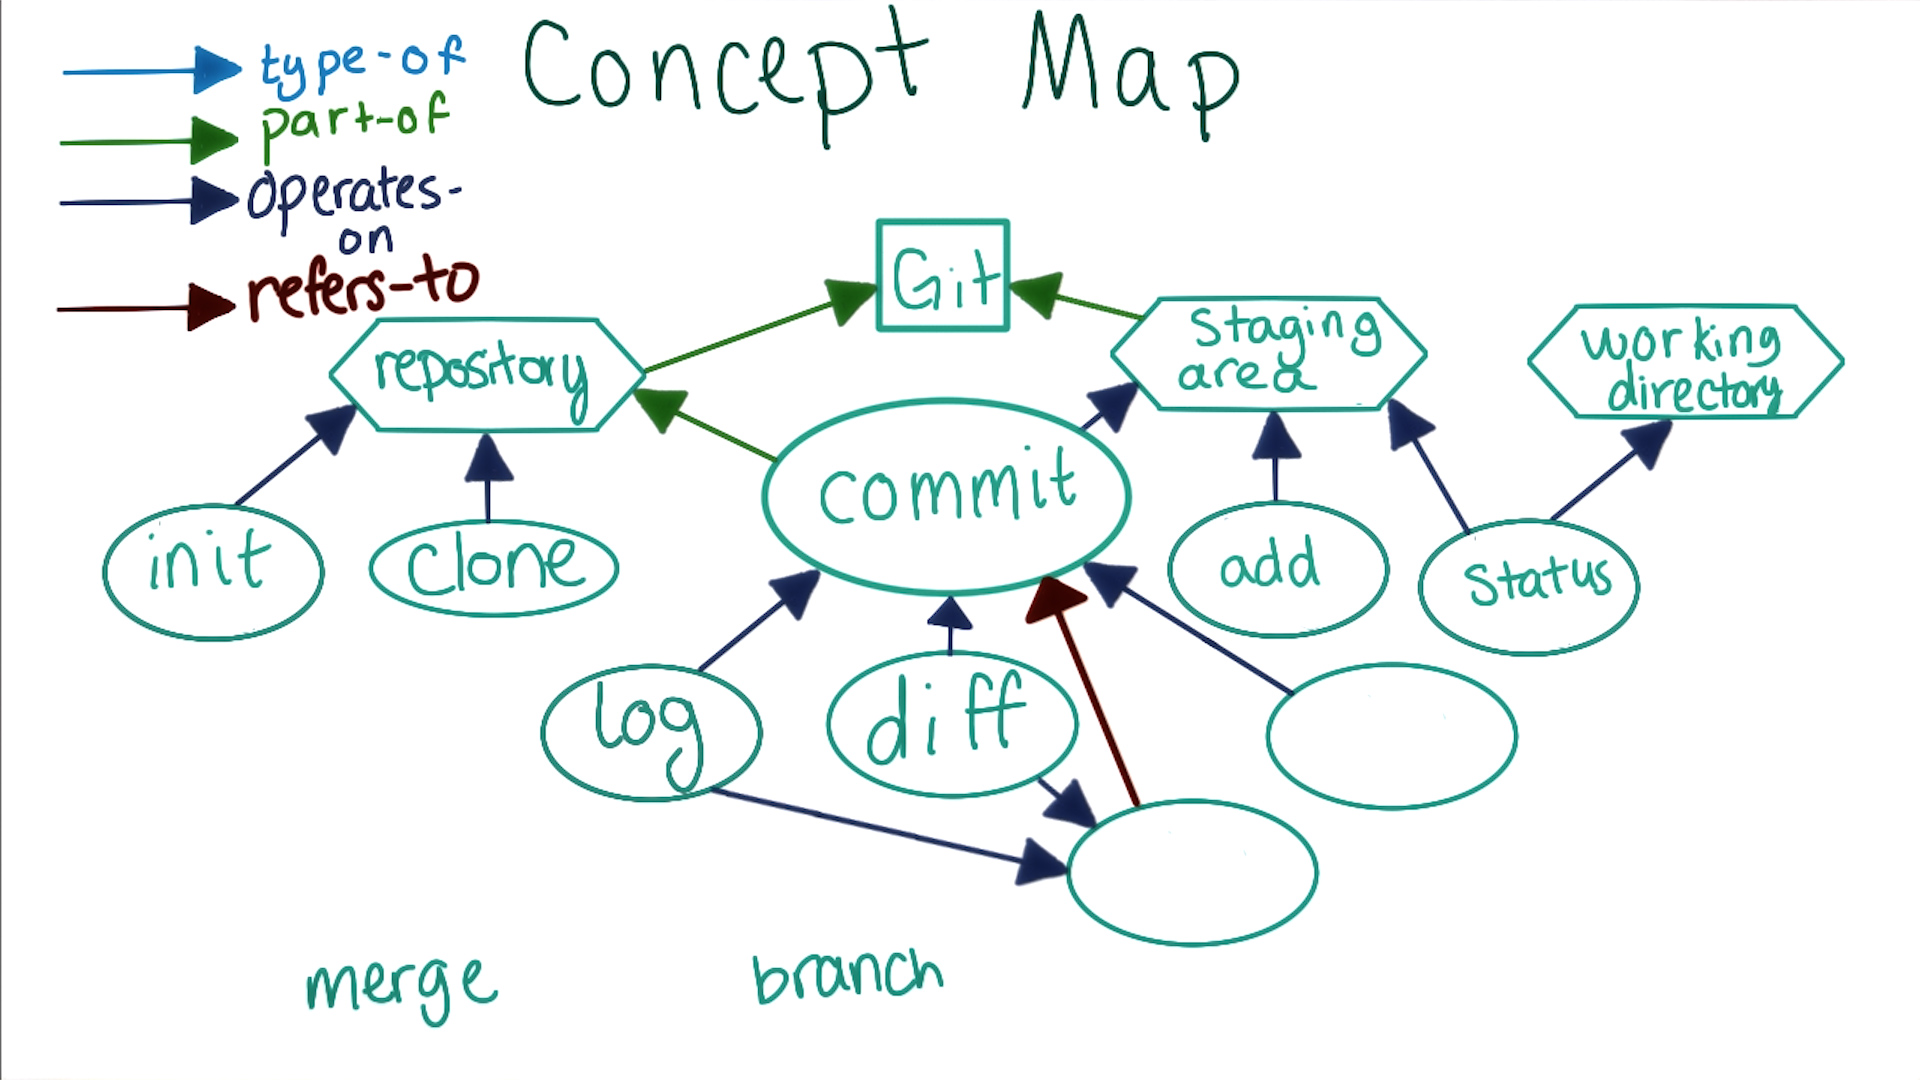 Concept Map
type-of
part-of
operates-
on
refers-to
Git
repository
Staging
area
working
directory
commit
init
clone
add
status
log
diff
merge
branch